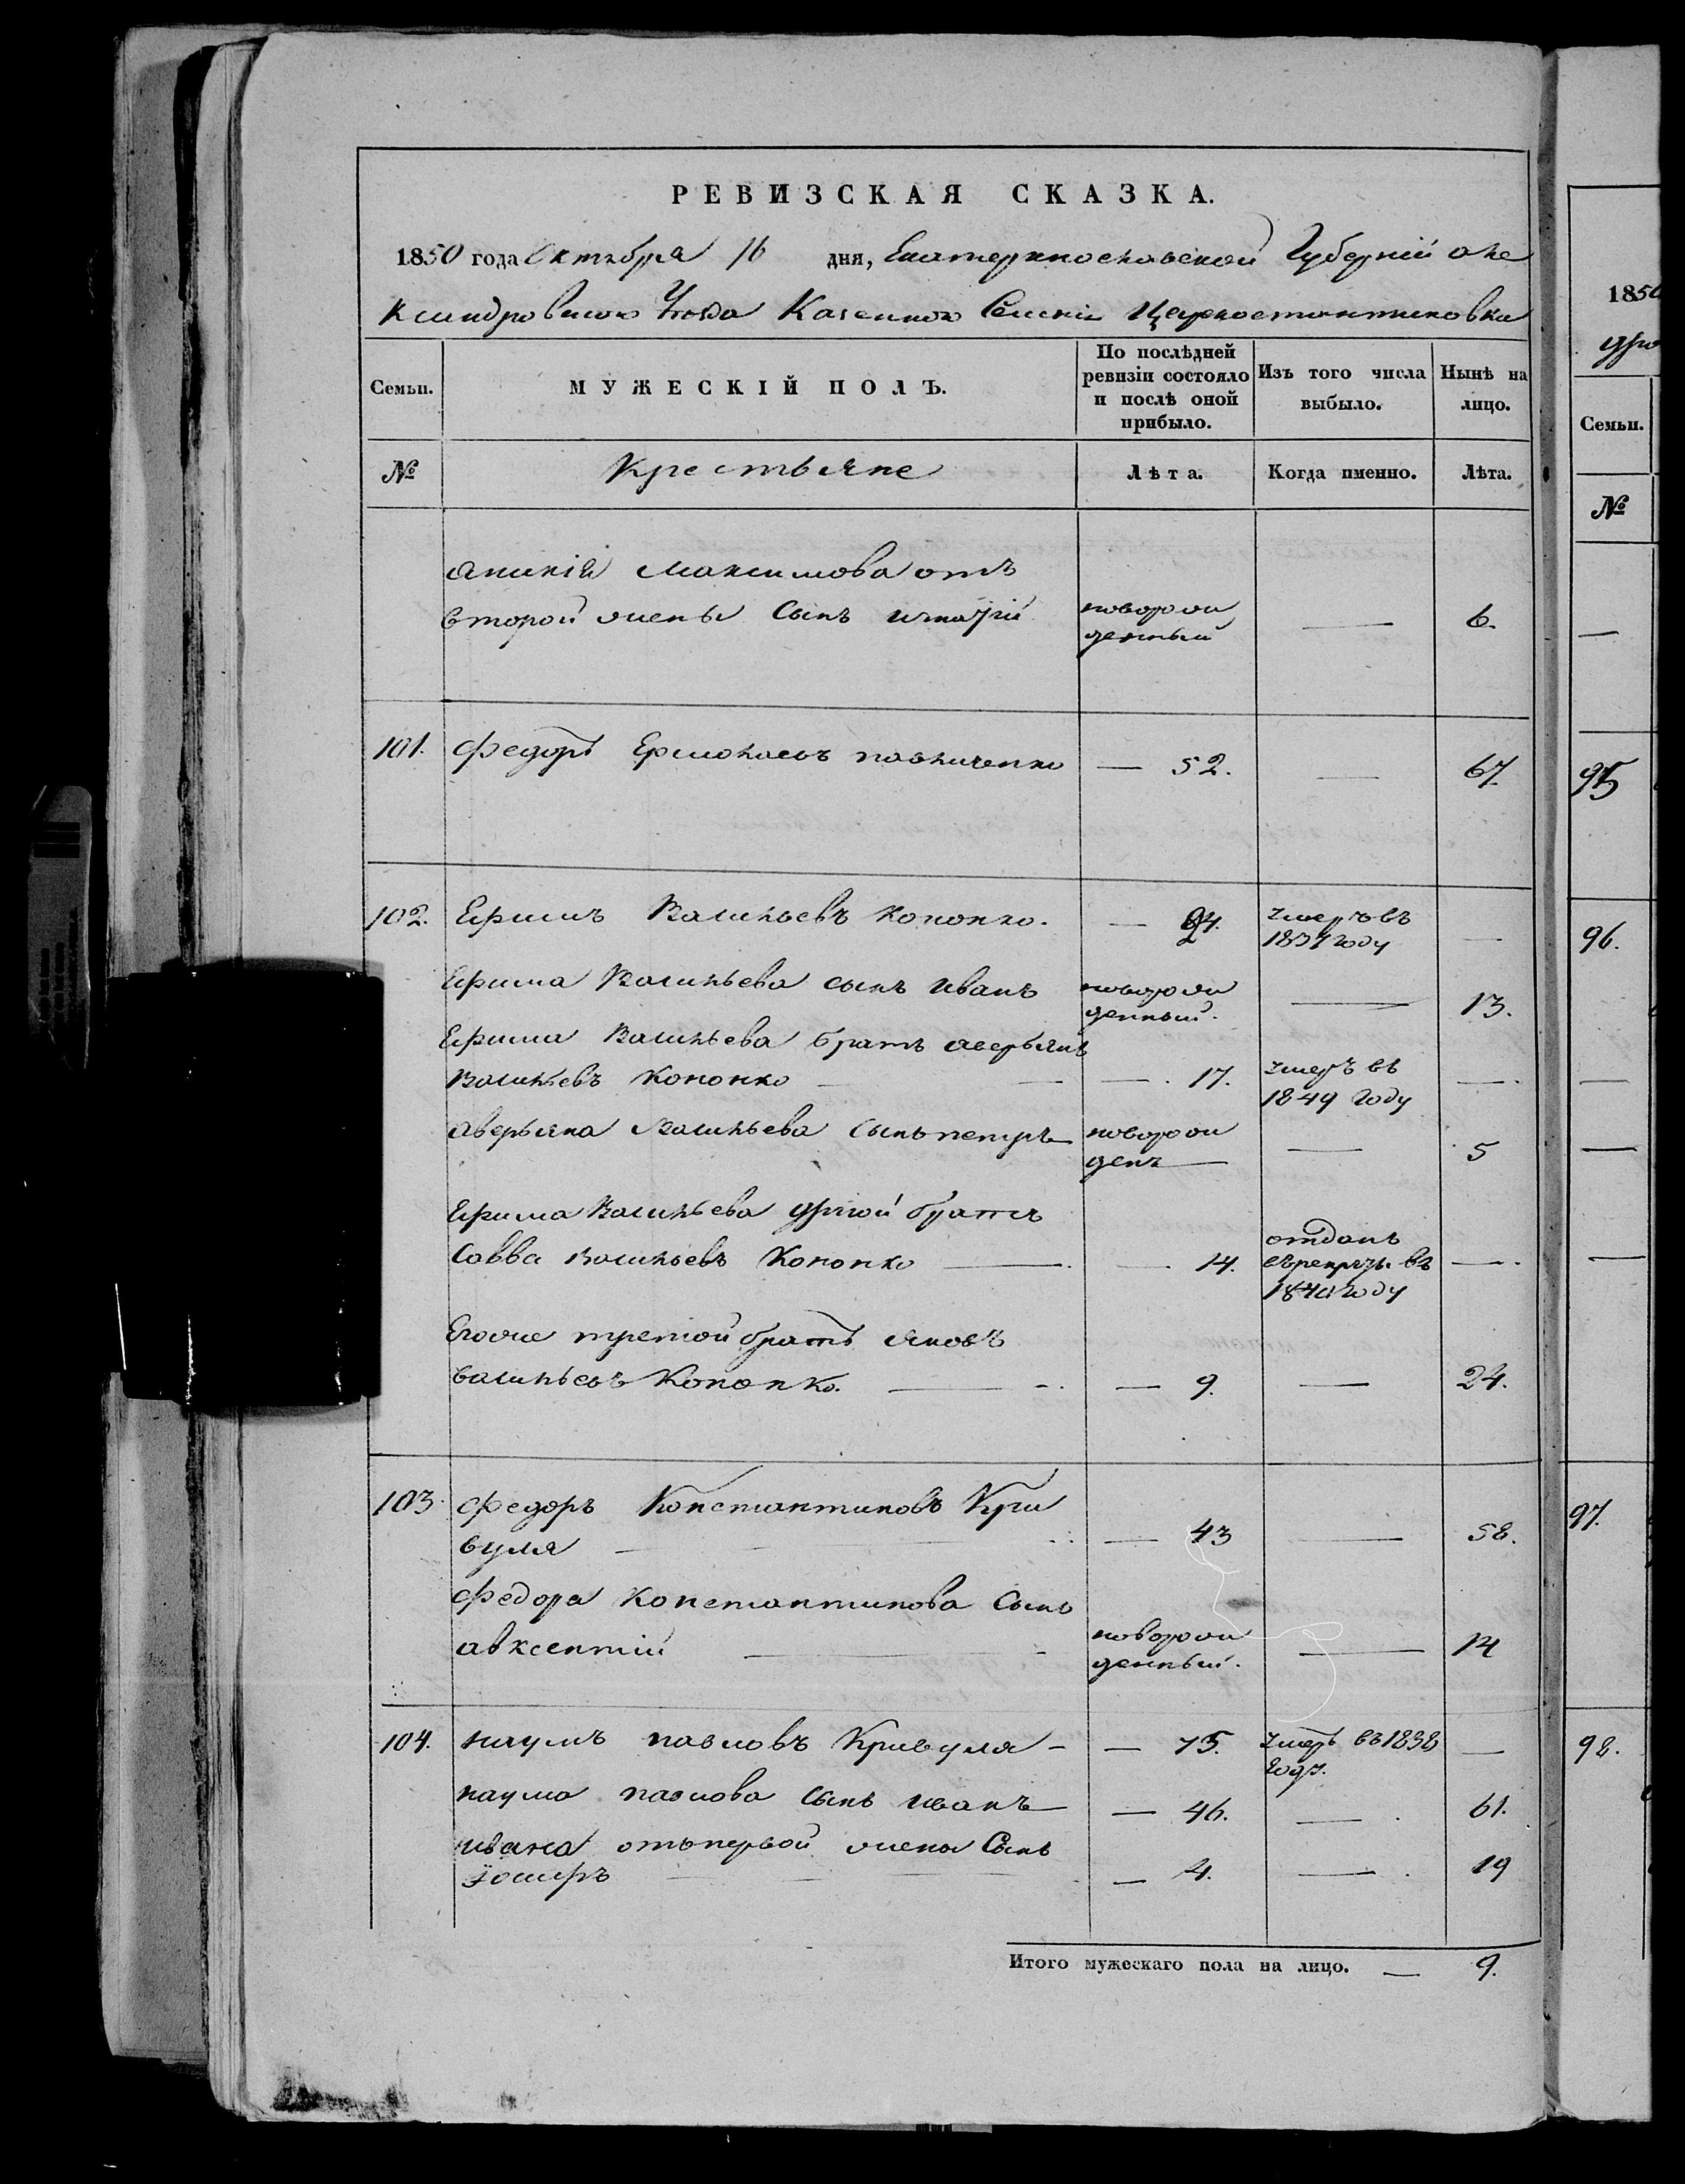 РЕВИЗСКАЯ СКАЗКА.
1850 года Октября 16 дня, Екатеринославской Губерніи Але
ксандровскаго Уезда Казенного Селенія Цареконстантиновки
Семьи.
МУЖЕСКІЙ ПОЛЪ.
По послѣдней ревизіи состояло и послѣ оной прибыло.
Изъ того числа выбыло.
Нынѣ на лицо.
№
Крестьяне
Лѣта.
Когда именно.
Лѣта.
Максимова отъ
второй жены Сынъ игнатій новорожденный — 6.
101. Федоръ Ермолаевъ — 52. — 67.
102. Ефимъ Васильевъ Кононко. — 24. умеръ въ 1837 году —
Ефима Васильева сынъ иванъ новорожденный. — 13.
Ефима Васильева братъ аверьянъ
Васильевъ Кононко — 17. умеръ въ 1849 году —
аверьяна Васильева сынъ петръ новорожденъ — 5
Ефима Васильева другой братъ
Савва Васильевъ Кононко — 14. отданъ въ рекруты въ 1840 году —
Егоже третой братъ яковъ
васильевъ Кононко. — 9. — 24.
103. Федоръ Константиновъ Кри
вуля — 43 — 58.
Федора Константинова Сынъ
авксентій новорожденный. — 14
104. наумъ павловъ Кривуля — 75. умеръ въ 1838 году. —
наума павлова сынъ иванъ — 46. — 61.
ивана отъ первой жены Сынъ
— 4. — 19
Итого мужескаго пола на лицо. — 9.
1850
дро
Семьи.
№
95
96.
97.
98.